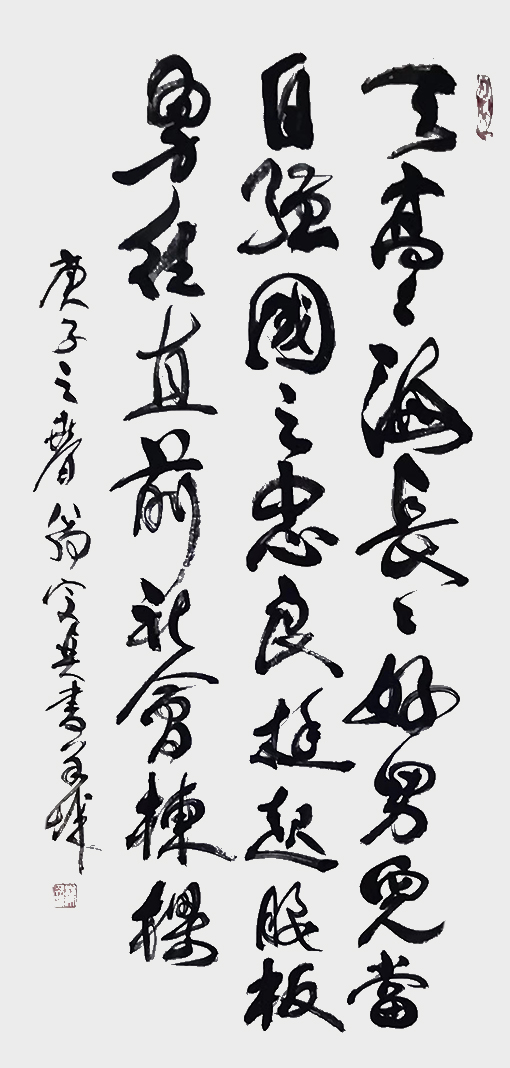 天高高海長長好男兒當
自强國之忠良挺起腰板
勇往直前社會棟樑
庚子之春翁寅其書羊城